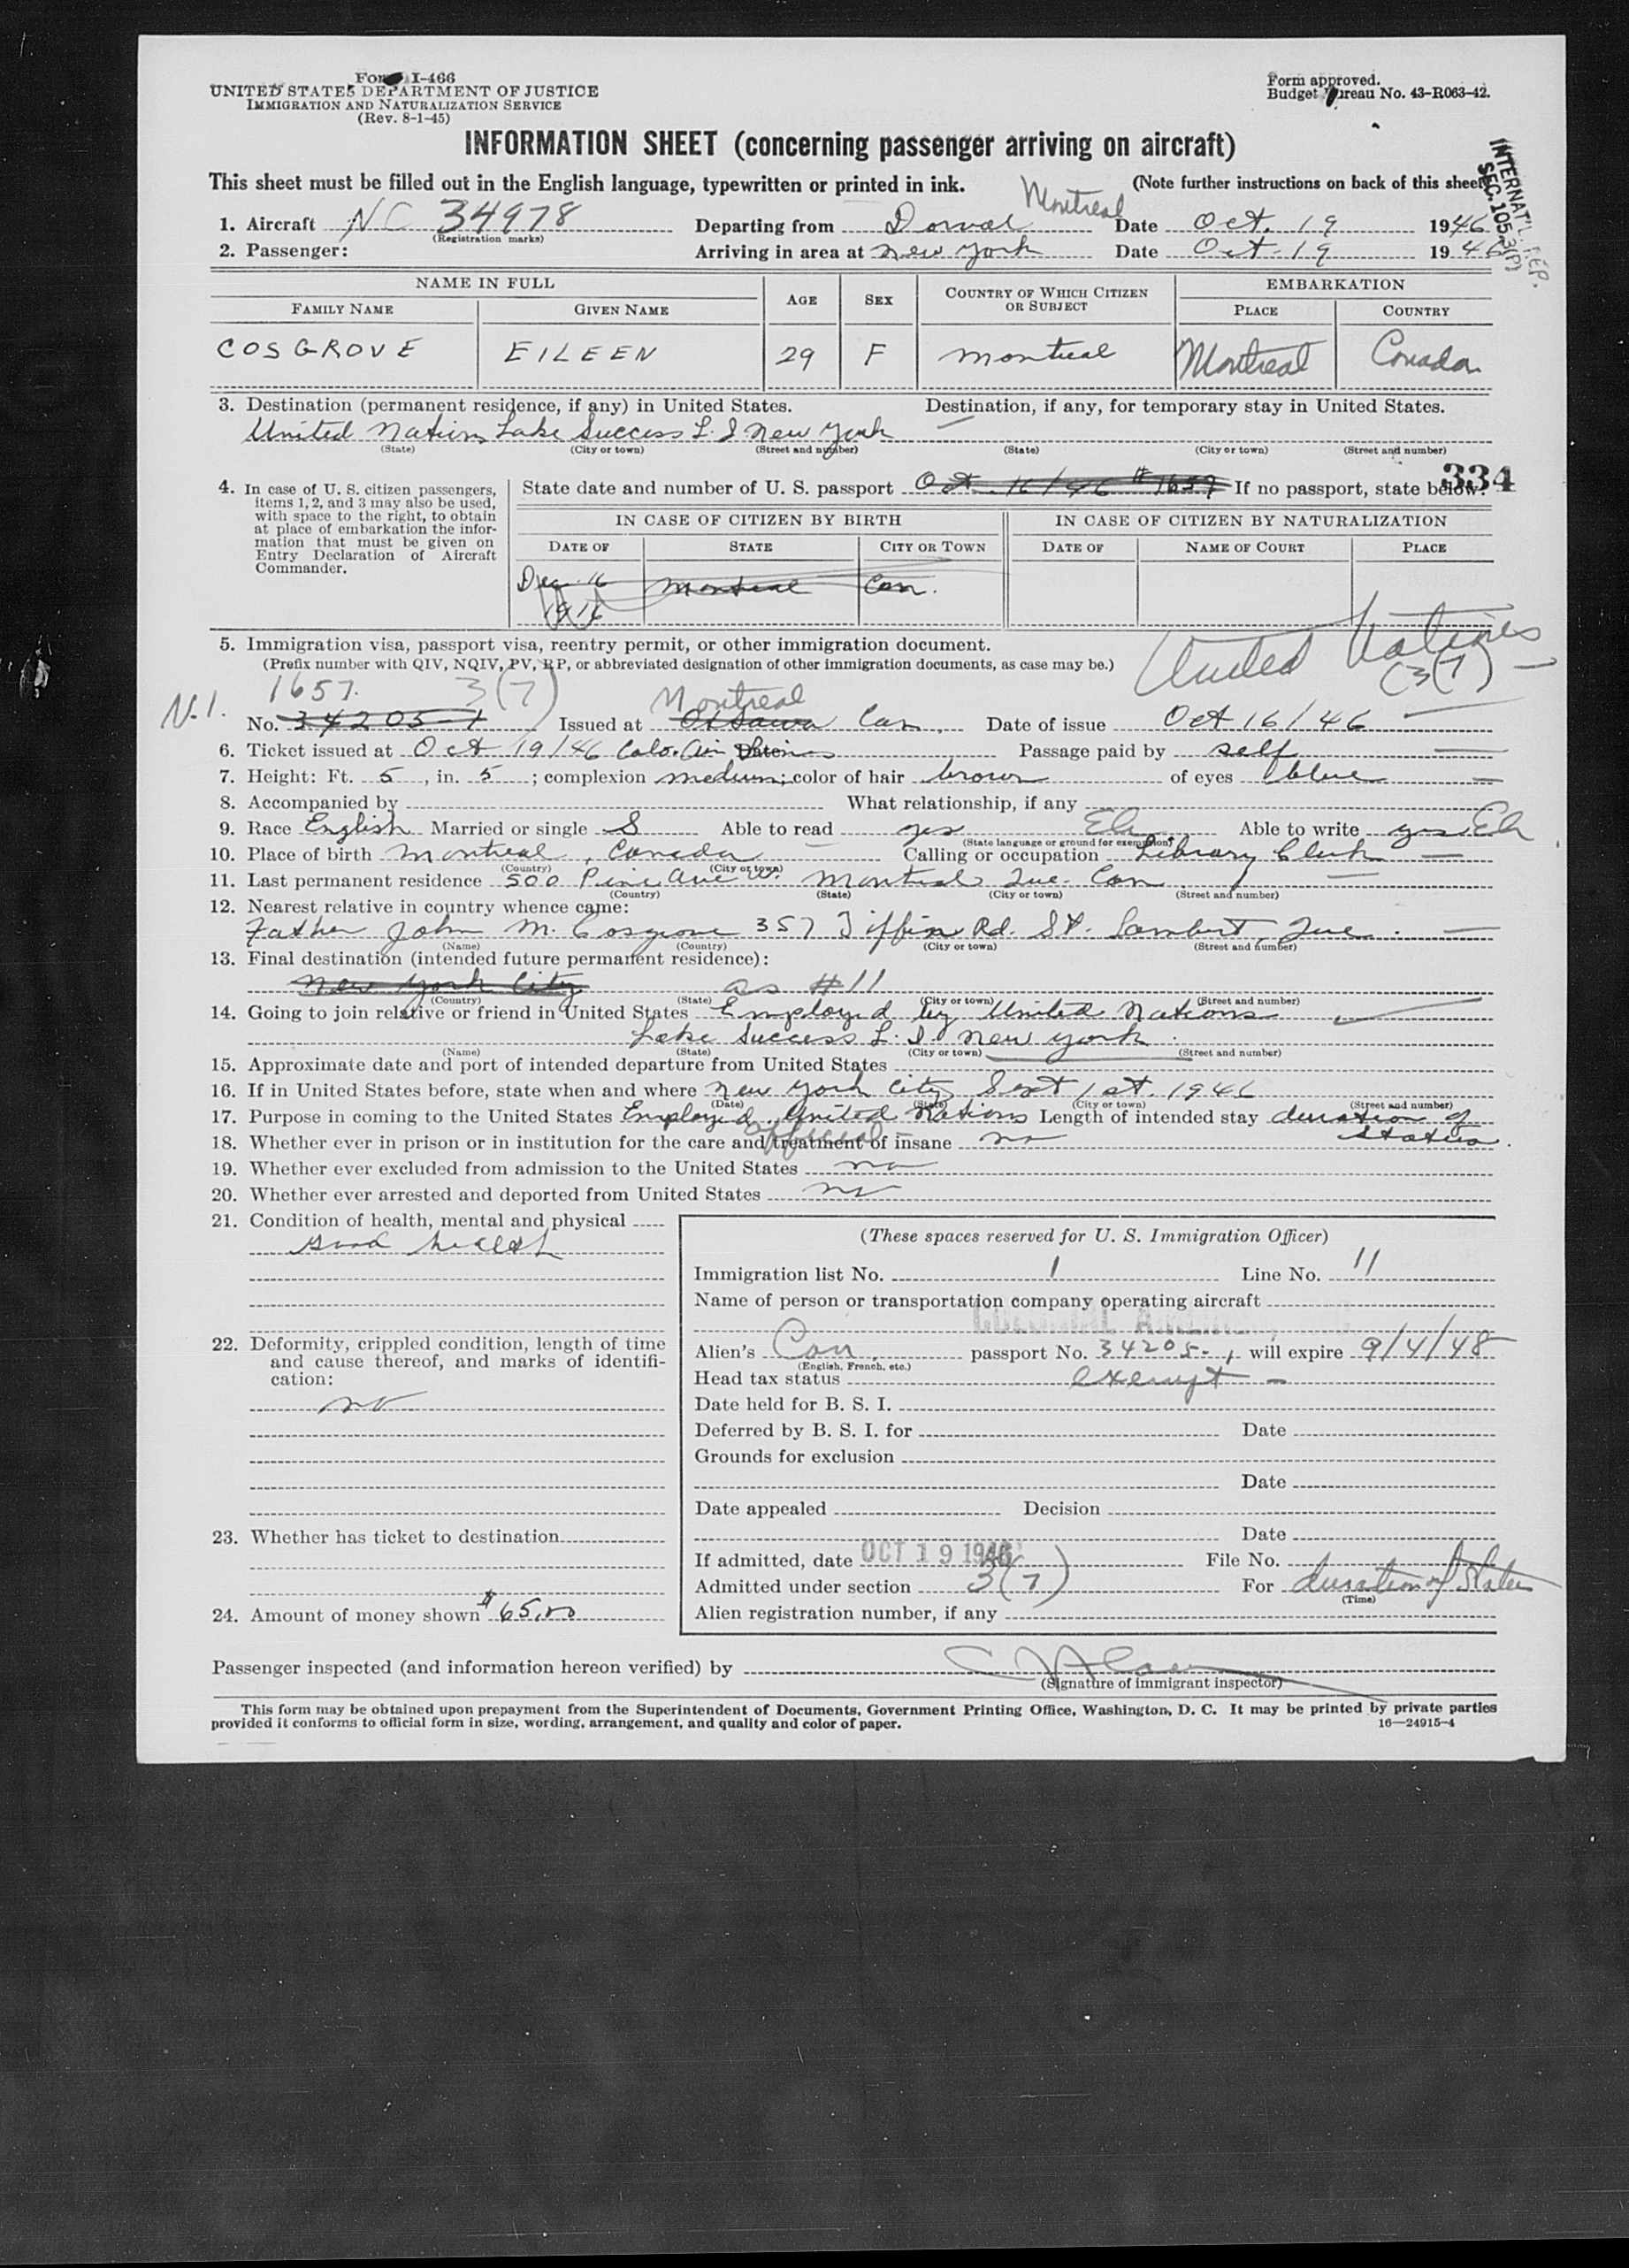 Form I-466
UNITED STATES DEPARTMENT OF JUSTICE
IMMIGRATION AND NATURALIZATION SERVICE
(Rev. 8-1-45)
Form approved.
Budget Bureau No. 43-R063-42.
INFORMATION SHEET (concerning passenger arriving on aircraft)
INTERNAT'L. REP.
SEC. 105.3(P)
This sheet must be filled out in the English language, typewritten or printed in ink. (Note further instructions on back of this sheet
Montreal
1. Aircraft NC 34978 Departing from Dorval Date Oct. 19 1946
(Registration marks)
2. Passenger: Arriving in area at New York Date Oct. 19 1946
NAME IN FULL AGE SEX COUNTRY OF WHICH CITIZEN OR SUBJECT EMBARKATION
FAMILY NAME GIVEN NAME PLACE COUNTRY
COSGROVE EILEEN 29 F Montreal Montreal Canada
3. Destination (permanent residence, if any) in United States. Destination, if any, for temporary stay in United States.
United Nations Lake Success L. I New York —
(State) (City or town) (Street and number) (State) (City or town) (Street and number)
334
4. In case of U. S. citizen passengers, items 1, 2, and 3 may also be used, with space to the right, to obtain at place of embarkation the information that must be given on Entry Declaration of Aircraft Commander.
State date and number of U. S. passport Oct. 16/46 #1657 If no passport, state below:
IN CASE OF CITIZEN BY BIRTH IN CASE OF CITIZEN BY NATURALIZATION
DATE OF STATE CITY OR TOWN DATE OF NAME OF COURT PLACE
Dec. 16 Montreal Can.
1916
5. Immigration visa, passport visa, reentry permit, or other immigration document.
(Prefix number with QIV, NQIV, PV, RP, or abbreviated designation of other immigration documents, as case may be.)
United Nations
(3(7) —
1657. 3(7) Montreal
N.I. No. 34205-1 Issued at Ottawa Can. Date of issue Oct 16/46
6. Ticket issued at Oct 19/46 Colo. Air Passage paid by self
7. Height: Ft. 5, in. 5; complexion medium; color of hair brown of eyes blue
8. Accompanied by What relationship, if any
9. Race English Married or single S Able to read yes Able to write yes
(State language or ground for exemption)
10. Place of birth Montreal, Canada Calling or occupation Library Clerk
(Country) (City or town)
11. Last permanent residence 500 Pine Ave W. Montreal Que. Can
(Country) (State) (City or town) (Street and number)
12. Nearest relative in country whence came:
Father John M. Cosgrove 357 Tiffin Rd. St. Lambert, Que.
(Name) (Country) (City or town) (Street and number)
13. Final destination (intended future permanent residence):
New York City as #11
(Country) (State) (City or town) (Street and number)
14. Going to join relative or friend in United States Employed by United Nations
Lake Success L. I. New York
(Name) (State) (City or town) (Street and number)
15. Approximate date and port of intended departure from United States
16. If in United States before, state when and where New York City Sept 1st. 1946
(Date) (State) (City or town) (Street and number)
17. Purpose in coming to the United States Employed United Nations Length of intended stay duration of
official — status.
18. Whether ever in prison or in institution for the care and treatment of insane no
19. Whether ever excluded from admission to the United States no
20. Whether ever arrested and deported from United States no
21. Condition of health, mental and physical
Good health
(These spaces reserved for U. S. Immigration Officer)
Immigration list No. 1 Line No. 11
Name of person or transportation company operating aircraft
COLONIAL AIRLINES, INC
22. Deformity, crippled condition, length of time and cause thereof, and marks of identification:
no
Alien's Can. passport No. 34205-1 will expire 9/4/48
(English, French, etc.)
Head tax status exempt —
Date held for B. S. I.
Deferred by B. S. I. for Date
Grounds for exclusion
Date
Date appealed Decision
23. Whether has ticket to destination
Date
If admitted, date OCT 19 1946 File No.
Admitted under section 3(7) For duration of status
(Time)
24. Amount of money shown $65.00
Alien registration number, if any
Passenger inspected (and information hereon verified) by
(Signature of immigrant inspector)
This form may be obtained upon prepayment from the Superintendent of Documents, Government Printing Office, Washington, D. C. It may be printed by private parties
provided it conforms to official form in size, wording, arrangement, and quality and color of paper. 16—24915-4